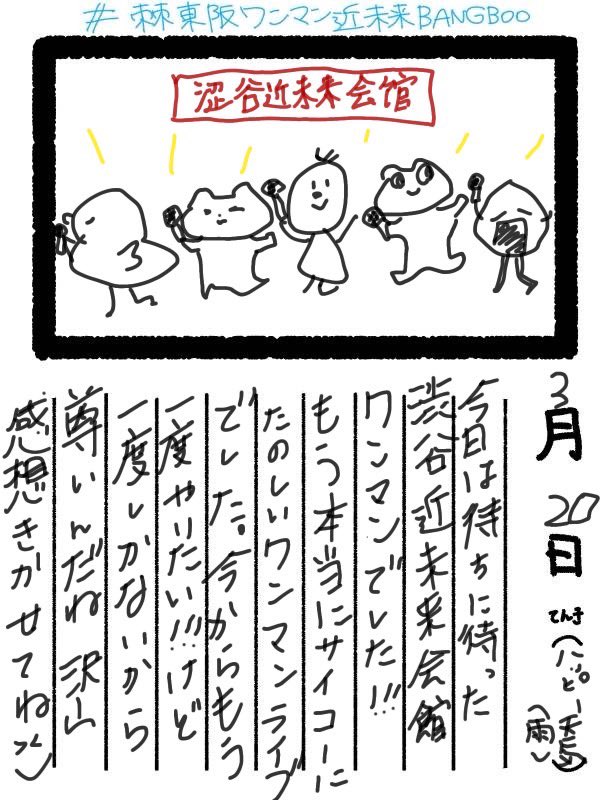 #棘東阪ワンマン近未来BANGBOO
澀谷近未来会館
3月20日
てんき(にっぴー嬉)
(雨)
今日は待ちに待った
渋谷近未来会館
ワンマンでした!!!
もう本当にサイコーに
たのしいワンマンライブ
でした。今からもう
一度やりたい!!!けど
一度しかないから
尊いんだね 沢山
感想きかせてね